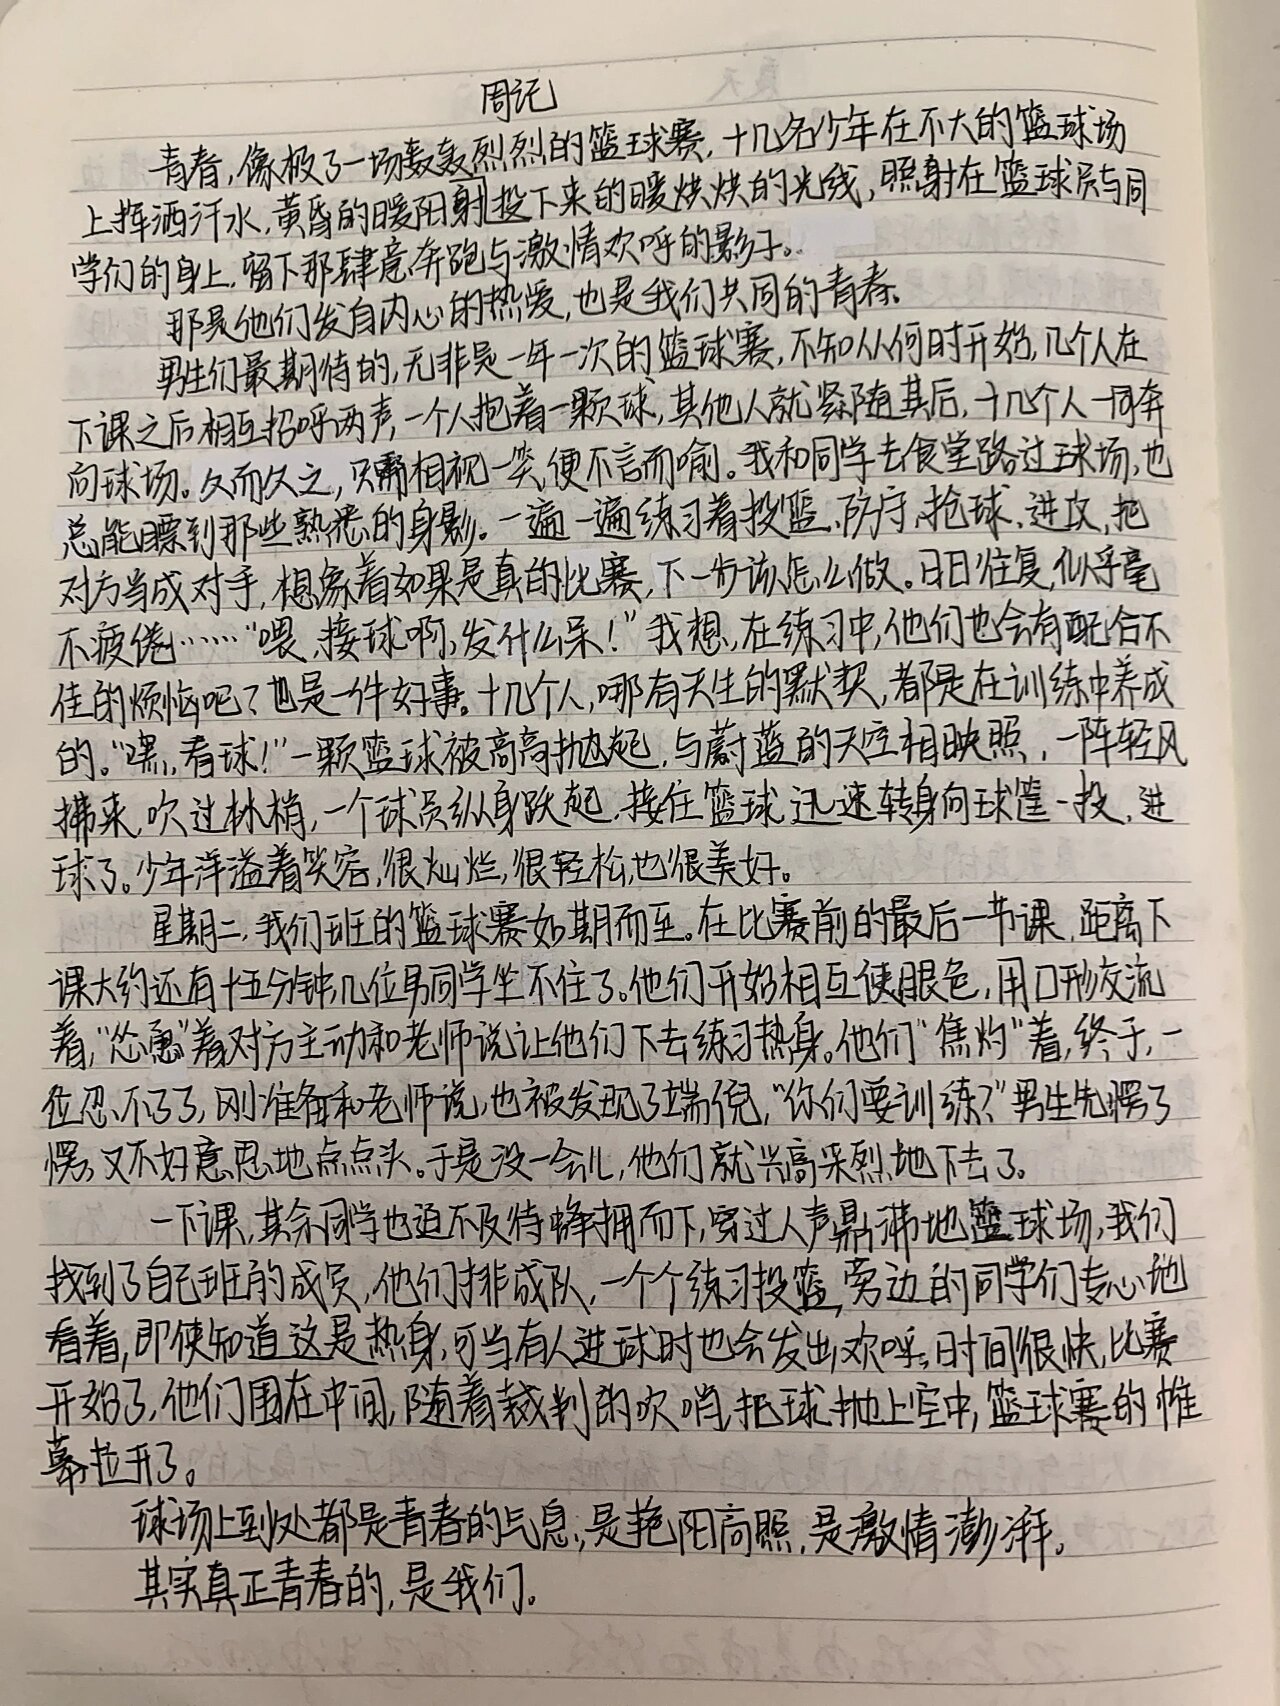 周记
青春，像极了一场轰轰烈烈的篮球赛，十几名少年在不大的篮球场
上挥洒汗水，黄昏的暖阳射投下来的暖烘烘的光线，照射在篮球员与同
学们的身上，留下那肆意奔跑与激情欢呼的影子。
那是他们发自内心的热爱，也是我们共同的青春。
男生们最期待的，无非是一年一次的篮球赛，不知从何时开始，几个人在
下课之后相互招呼两声，一个人抱着一颗球，其他人就紧随其后，十几个人一同奔
向球场。久而久之，只需相视一笑，便不言而喻。我和同学去食堂路过球场，也
总能瞟到那些熟悉的身影。一遍一遍练习着投篮、防守、抢球、进攻，把
对方当成对手，想象着如果是真的比赛，下一步该怎么做。日日往复，似乎毫
不疲倦……“喂，接球啊，发什么呆！”我想，在练习中，他们也会有配合不
佳的烦恼吧？也是一件好事。十几个人，哪有天生的默契，都是在训练中养成
的。“嘿，看球！”一颗篮球被高高抛起，与蔚蓝的天空相映照，一阵轻风
拂来，吹过林梢，一个球员纵身跃起，接住篮球，迅速转身向球筐一投，进
球了。少年洋溢着笑容，很灿烂，很轻松，也很美好。
星期二，我们班的篮球赛如期而至。在比赛前的最后一节课，距离下
课大约还有十五分钟，几位男同学坐不住了。他们开始相互使眼色，用口形交流
着，“怂恿”着对方主动和老师说让他们下去练习热身。他们“焦灼”着，终于，一
位忍不了了，刚准备和老师说，也被发现了端倪，“你们要训练？”男生先愣了
愣，又不好意思地点点头。于是没一会儿，他们就兴高采烈地下去了。
一下课，其余同学也迫不及待蜂拥而下，穿过人声鼎沸地篮球场，我们
找到了自己班的成员，他们排成队，一个个练习投篮，旁边的同学们专心地
看着，即使知道这是热身，可当有人进球时也会发出欢呼。时间很快，比赛
开始了，他们围在中间，随着裁判的吹哨，把球抛上空中，篮球赛的帷
幕拉开了。
球场上到处都是青春的气息，是艳阳高照，是激情澎湃。
其实真正青春的，是我们。